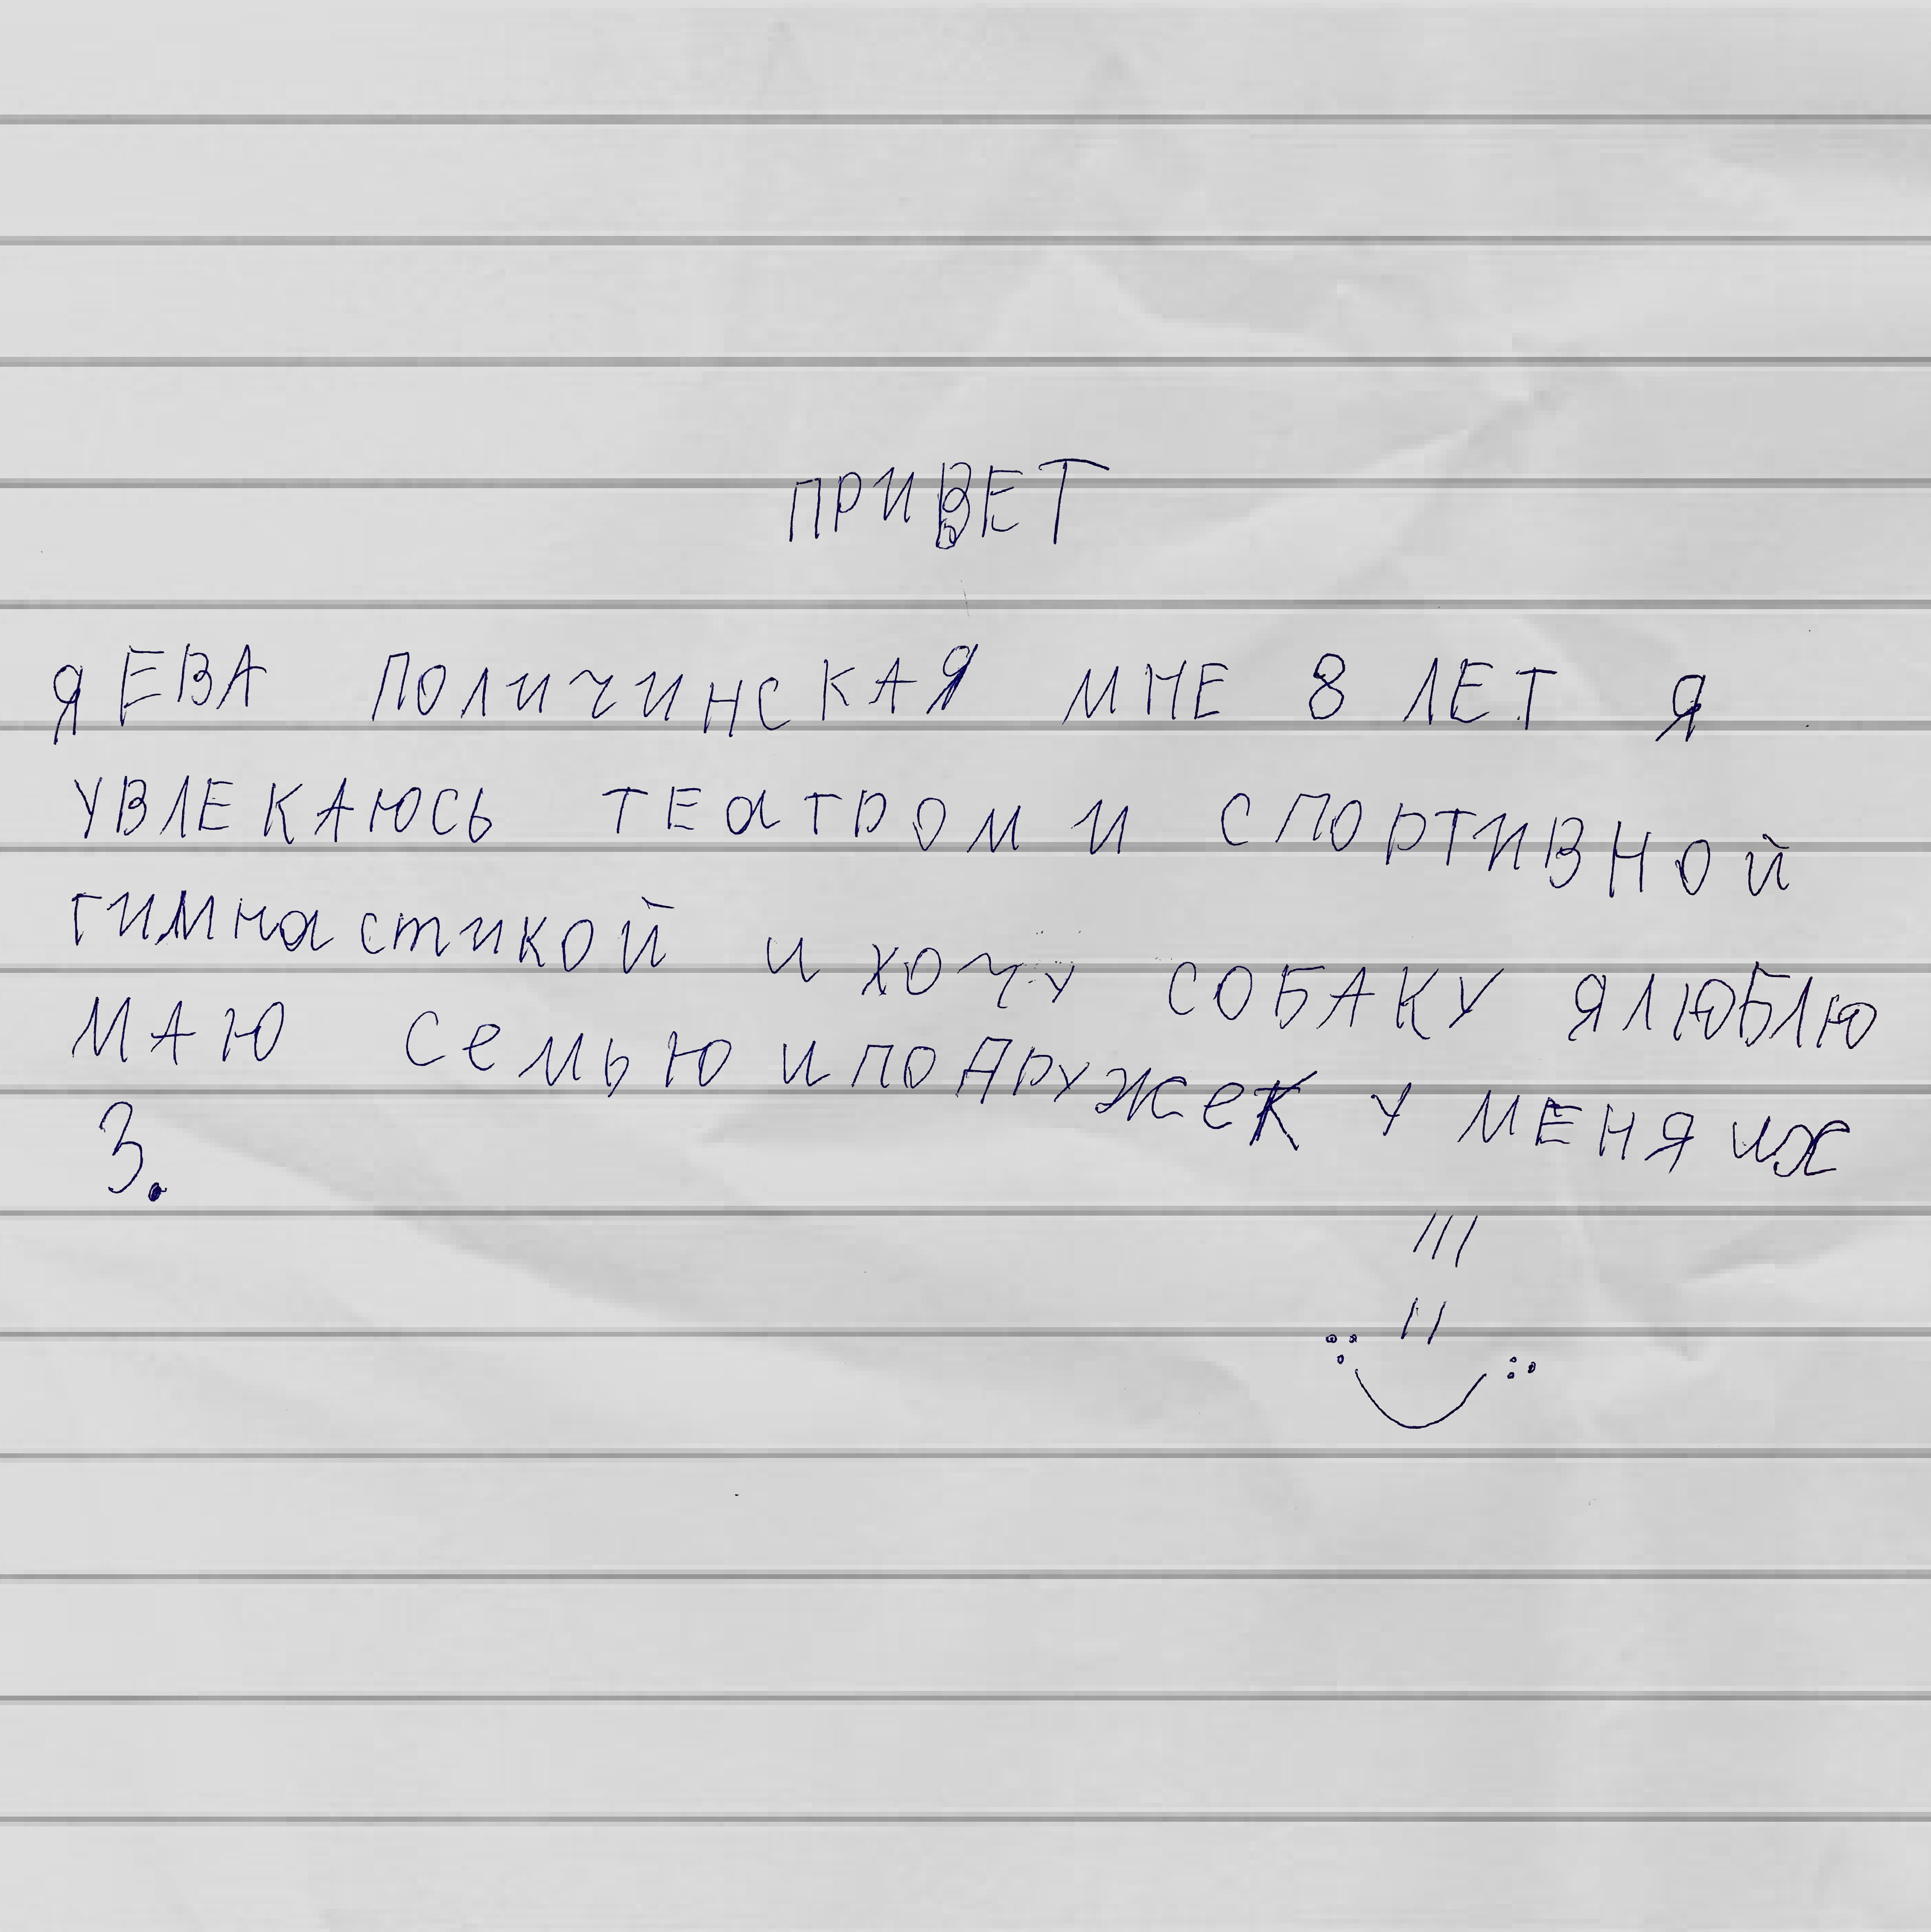 ПРИВЕТ
Я ЕВА ПОЛИЧИНСКАЯ МНЕ 8 ЛЕТ Я
УВЛЕКАЮСЬ ТЕаТРОМ И СПОРТИВНОЙ
гимнастикой и хочу СОБАКУ ЯЛЮБЛЮ
МАЮ СемьЮ и ПОДРУЖеК У МЕНЯ их
3.